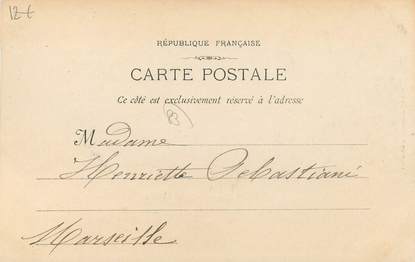 12€
RÉPUBLIQUE FRANÇAISE
CARTE POSTALE
Ce côté est exclusivement réservé à l'adresse
83
Madame
Henriette Sebastiani
Marseille